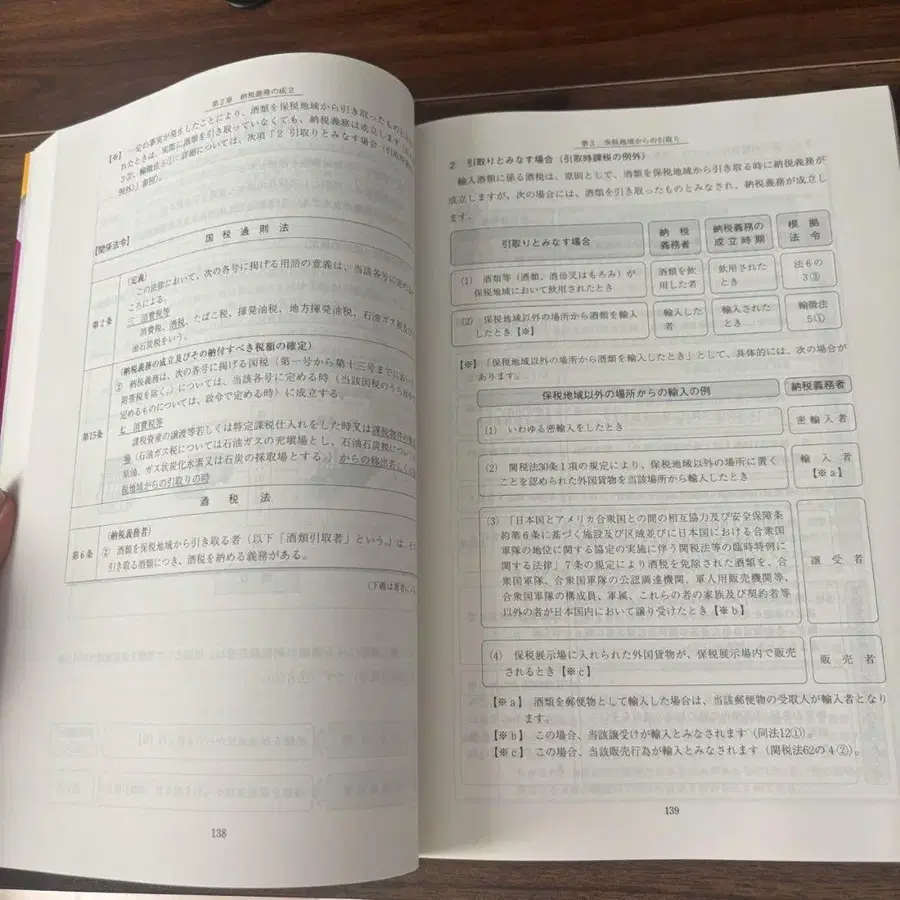 第2章 納税義務の成立
【※】 一定の事実が発生したことにより、酒類を保税地域から引き取ったものとみ
れたときは、実際に酒類を引き取っていなくても、納税義務は成立します
3③、輸徴法5①)(詳細については、次項「2 引取りとみなす場合(引取時課税の
例外)」参照)。
【関係法令】
国税通則法
第2条
(定義)
この法律において、次の各号に掲げる用語の意義は、当該各号に定めると
ころによる。
三 消費税等
消費税、酒税、たばこ税、揮発油税、地方揮発油税、石油ガス税及び
油石炭税をいう。
第15条
(納税義務の成立及びその納付すべき税額の確定)
② 納税義務は、次の各号に掲げる国税(第一号から第十三号までにおいて
附帯税を除く。)については、当該各号に定める時(当該国税のうち政令
定めるものについては、政令で定める時)に成立する。
七 消費税等
課税資産の譲渡等若しくは特定課税仕入れをした時又は課税物件の製造
場(石油ガス税については石油ガスの充塡場とし、石油石炭税につい
原油、ガス状炭化水素又は石炭の採取場とする。)からの移出若しくは
税地域からの引取りの時
酒税法
第6条
(納税義務者)
② 酒類を保税地域から引き取る者(以下「酒類引取者」という。)は、
引き取る酒類につき、酒税を納める義務がある。
(下線は著者に
138
第3 保税地域からの引取り
2 引取りとみなす場合(引取時課税の例外)
輸入酒類に係る酒税は、原則として、酒類を保税地域から引き取る時に納税義務が
成立しますが、次の場合には、酒類を引き取ったものとみなされ、納税義務が成立し
ます。
引取りとみなす場合
納税義務者
納税義務の成立時期
根拠法令
(1) 酒類等(酒類、酒母又はもろみ)が
保税地域において飲用されたとき
酒類を飲用した者
飲用されたとき
法6の3③
(2) 保税地域以外の場所から酒類を輸入
したとき【※】
輸入した者
輸入されたとき
輸徴法5①
【※】「保税地域以外の場所から酒類を輸入したとき」として、具体的には、次の場合が
あります。
保税地域以外の場所からの輸入の例
納税義務者
(1) いわゆる密輸入をしたとき
密輸入者
(2) 関税法30条1項の規定により、保税地域以外の場所に置く
ことを認められた外国貨物を当該場所から輸入したとき
輸入者
【※a】
(3) 「日本国とアメリカ合衆国との間の相互協力及び安全保障条
約第6条に基づく施設及び区域並びに日本国における合衆国
軍隊の地位に関する協定の実施に伴う関税法等の臨時特例に
関する法律」7条の規定により酒税を免除された酒類を、合
衆国軍隊、合衆国軍隊の公認調達機関、軍人用販売機関等、
合衆国軍隊の構成員、軍属、これらの者の家族及び契約者等
以外の者が日本国内において譲り受けたとき【※b】
譲受者
(4) 保税展示場に入れられた外国貨物が、保税展示場内で販売
されるとき【※c】
販売者
【※a】 酒類を郵便物として輸入した場合は、当該郵便物の受取人が輸入者となり
ます。
【※b】 この場合、当該譲受けが輸入とみなされます(同法12①)。
【※c】 この場合、当該販売行為が輸入とみなされます(関税法62の4②)。
139